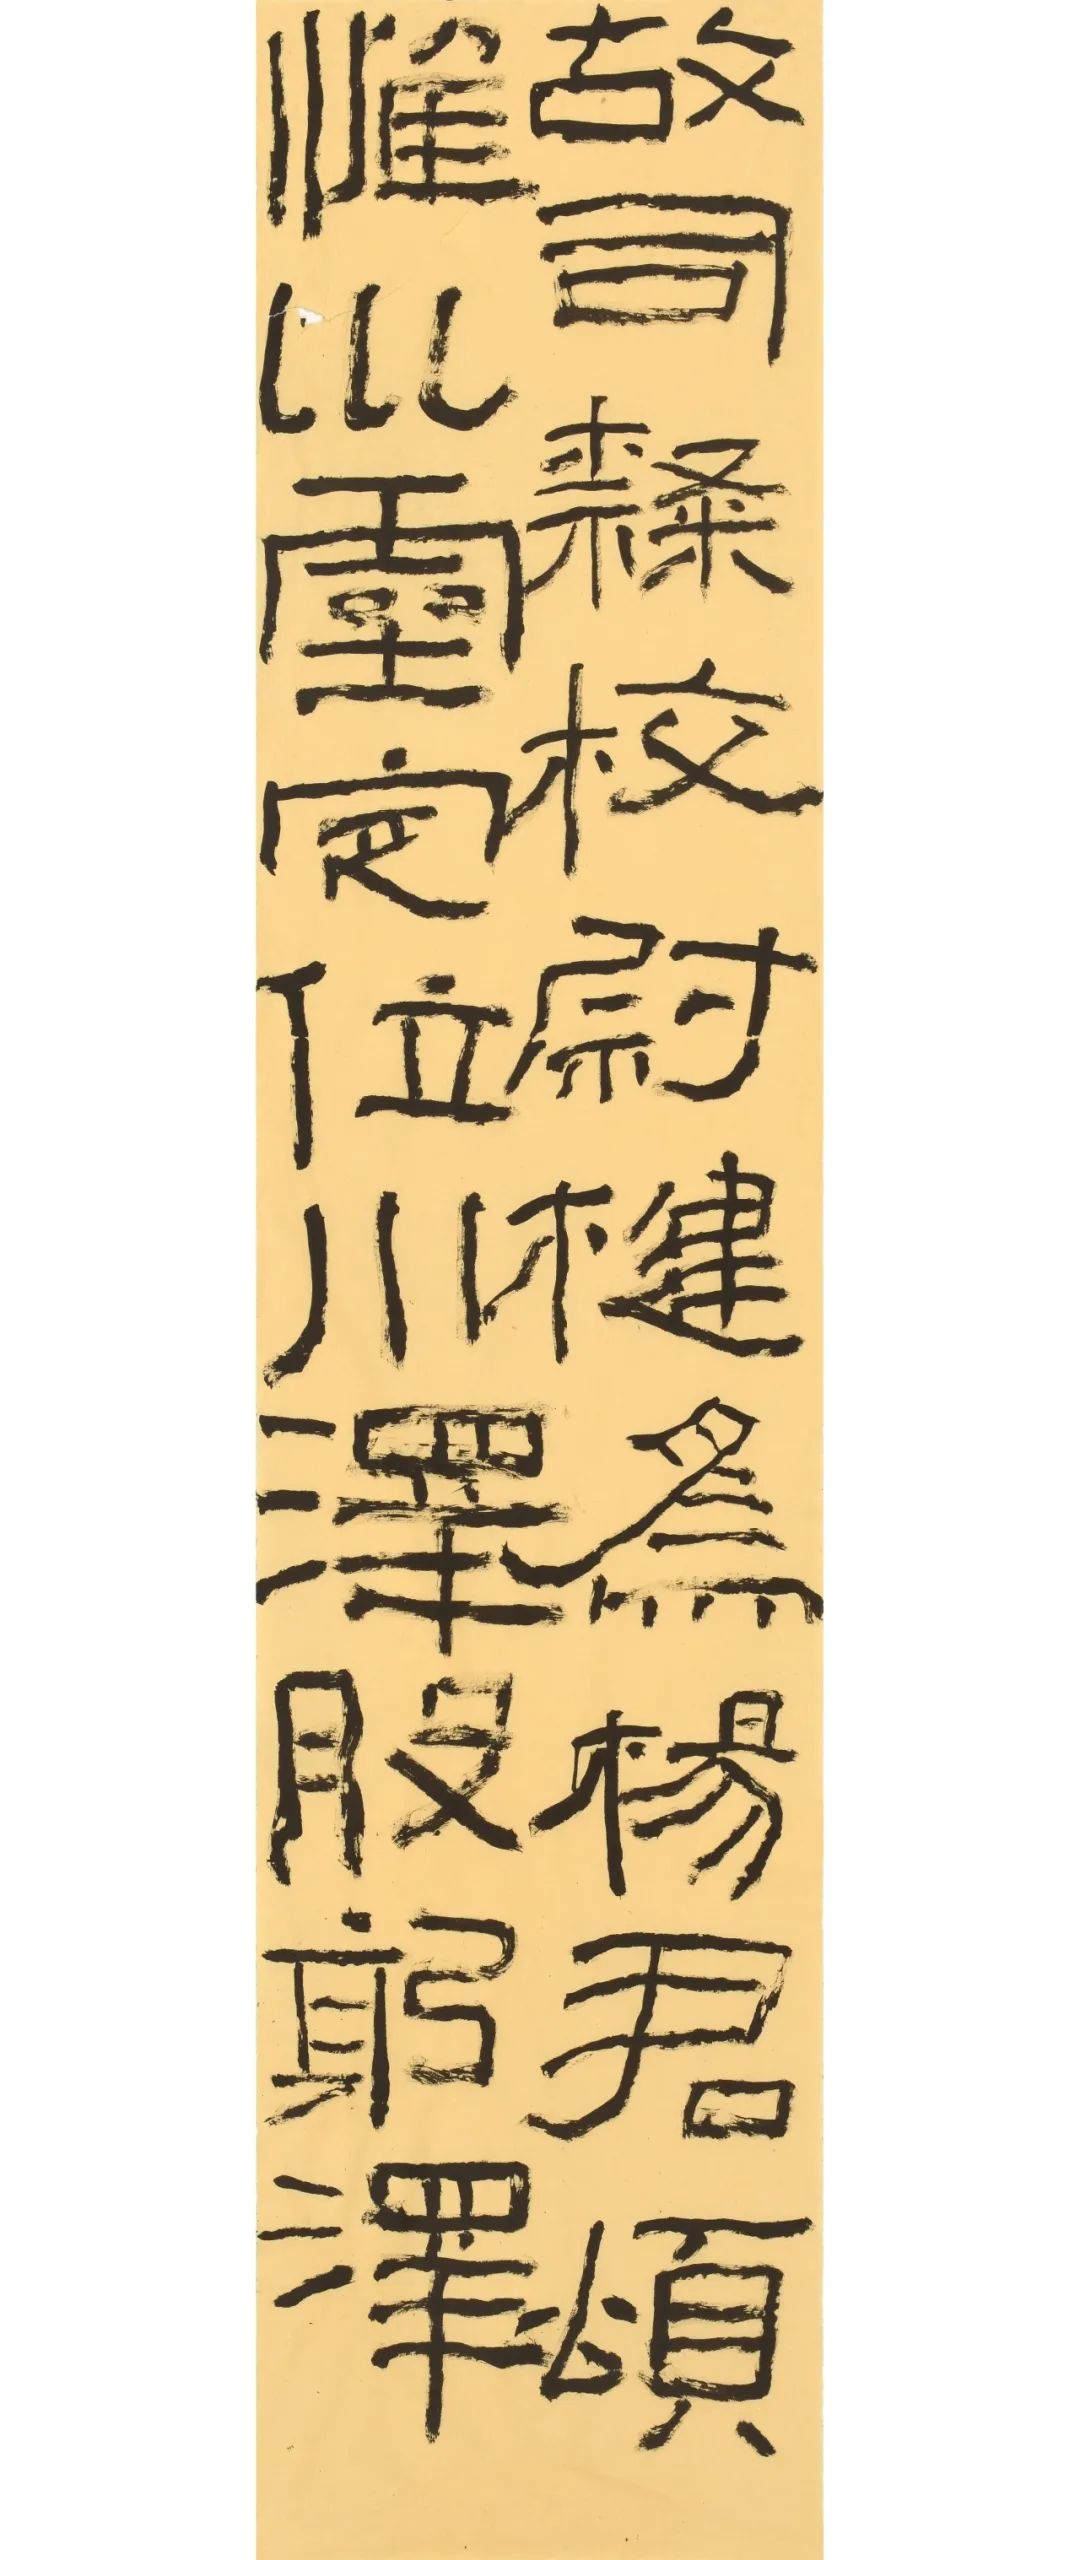 故司隸校尉楗爲楊君頌
惟巛靈定位川澤股躬澤